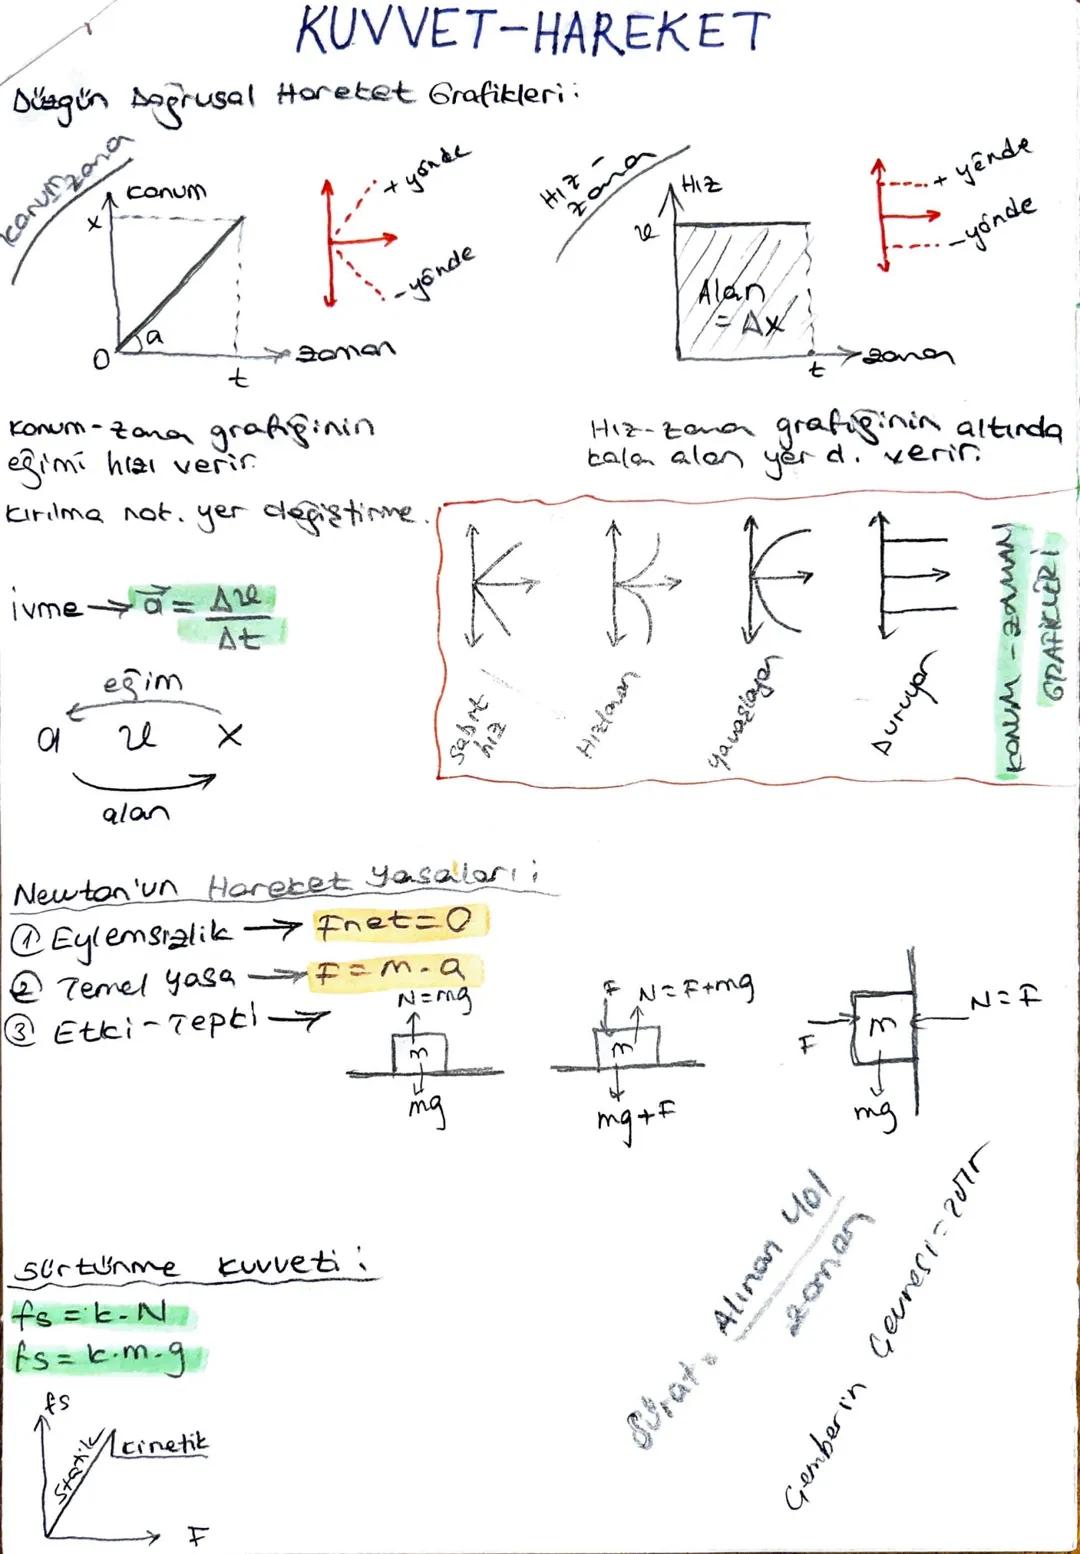 KUVVET-HAREKET
Düzgün Doğrusal Hareket Grafikleri:
konum zaman
konum
x
+ yönde
- yönde
0
a
t
zaman
Hız zaman
Hız
v
Alan
= Δx
t
zaman
+ yönde
- yönde
Konum-zaman grafiğinin
eğimi hızı verir.
Hız-zaman grafiğinin altında
kalan alan yer d. verir.
kırılma nok. yer değiştirme.
ivme → a = Δv
Δt
eğim
a v x
alan
Sabit hız
Hızlanan
Yavaşlayan
Duruyor
KONUM-ZAMAN
GRAFİKLERİ
Newton'un Hareket Yasaları:
① Eylemsizlik → Fnet=0
② Temel yasa → F=m.a
③ Etki-Tepki →
N=mg
m
mg
F
N=F+mg
m
mg+F
F
m
N=F
mg
Sürat = Alınan yol
zaman
Çemberin Çevresi=2πr
Sürtünme kuvveti:
fs=k.N
fs=k.m.g
fs
Statik
kinetik
F